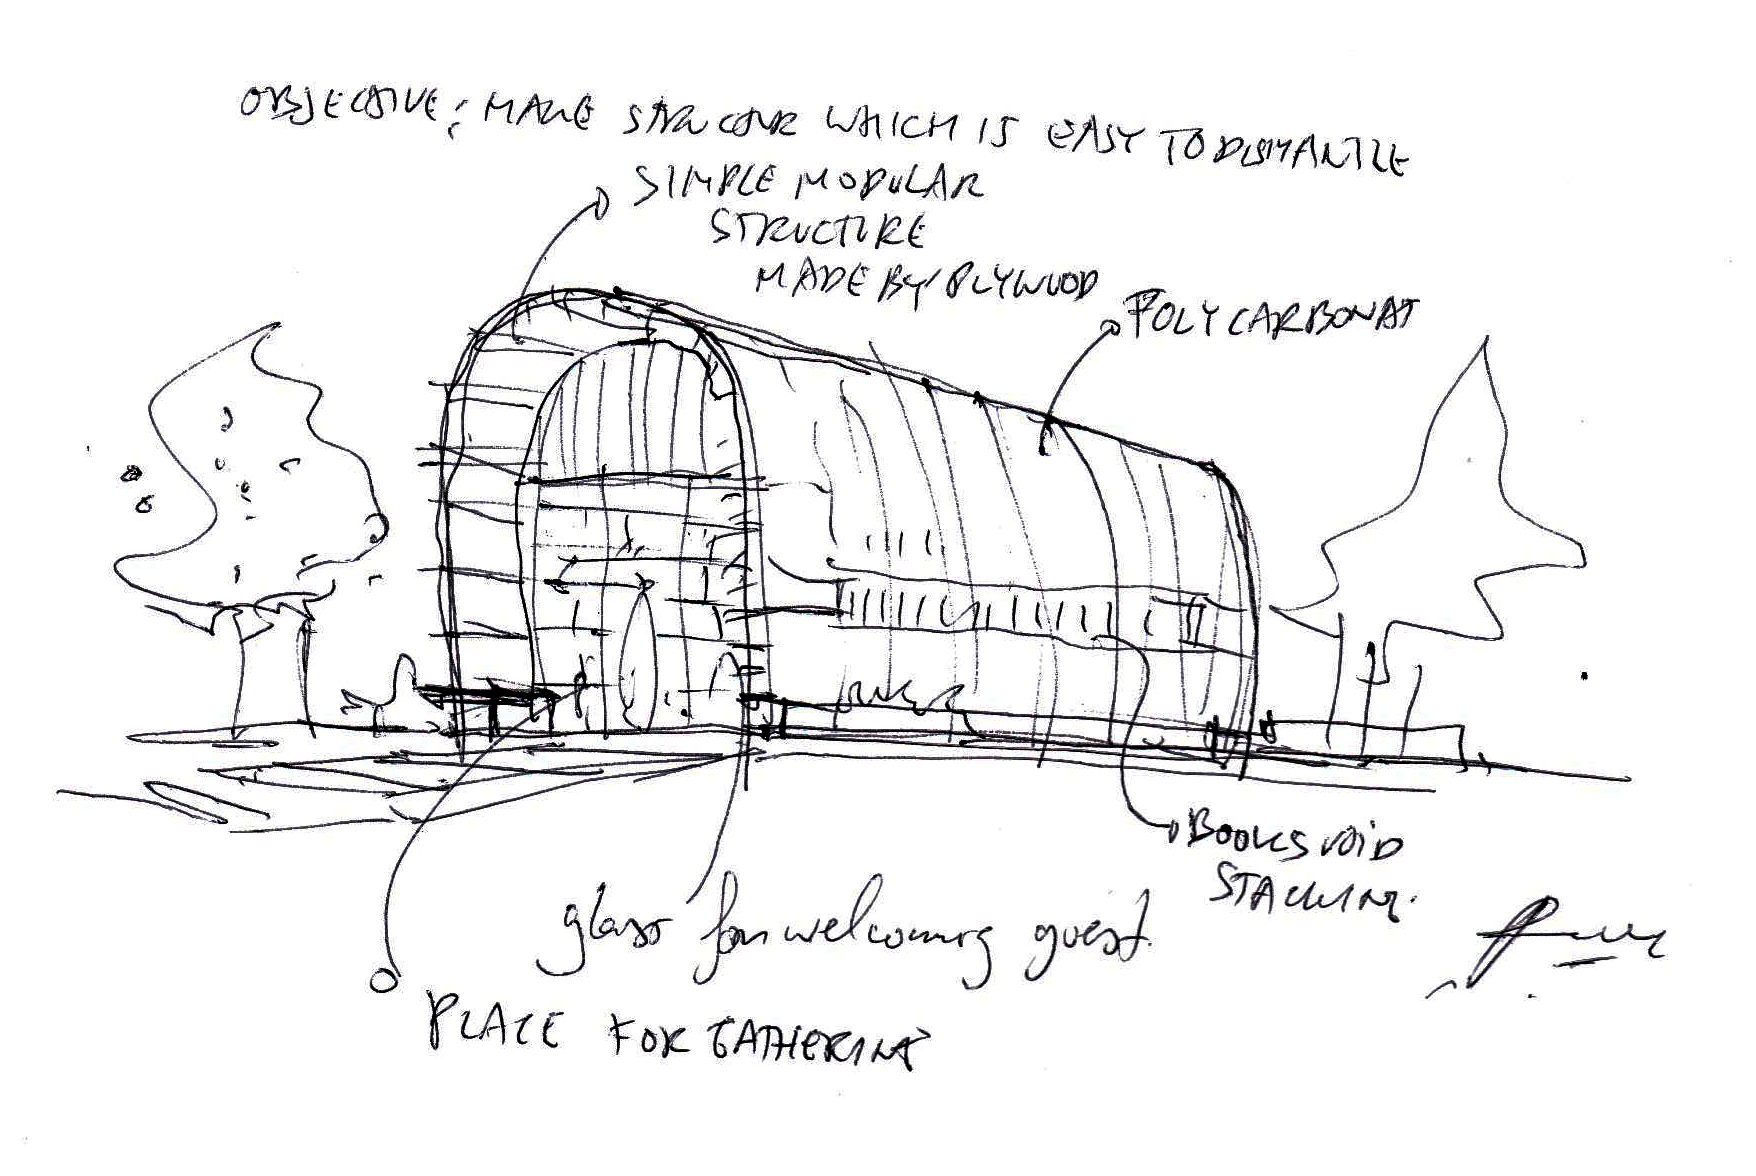 OBJECTIVE: MAKE STRUCTUR WHICH IS EASY TO DISMANTLE
SIMPLE MODULAR
STRUCTURE
MADE BY PLYWOOD
POLYCARBONAT
BOOKS VOID
STACKING.
glass for welcoming guest
PLACE FOR GATHERING